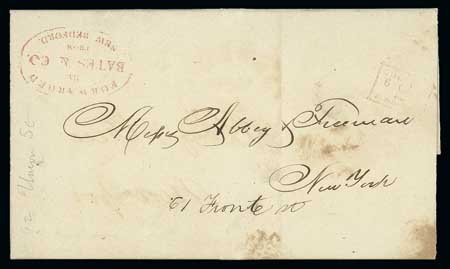 FORWARDED
BY
BATES & CO.
FROM
NEW BEDFORD.
Messrs Abbey & Freeman
New York
61 Front st